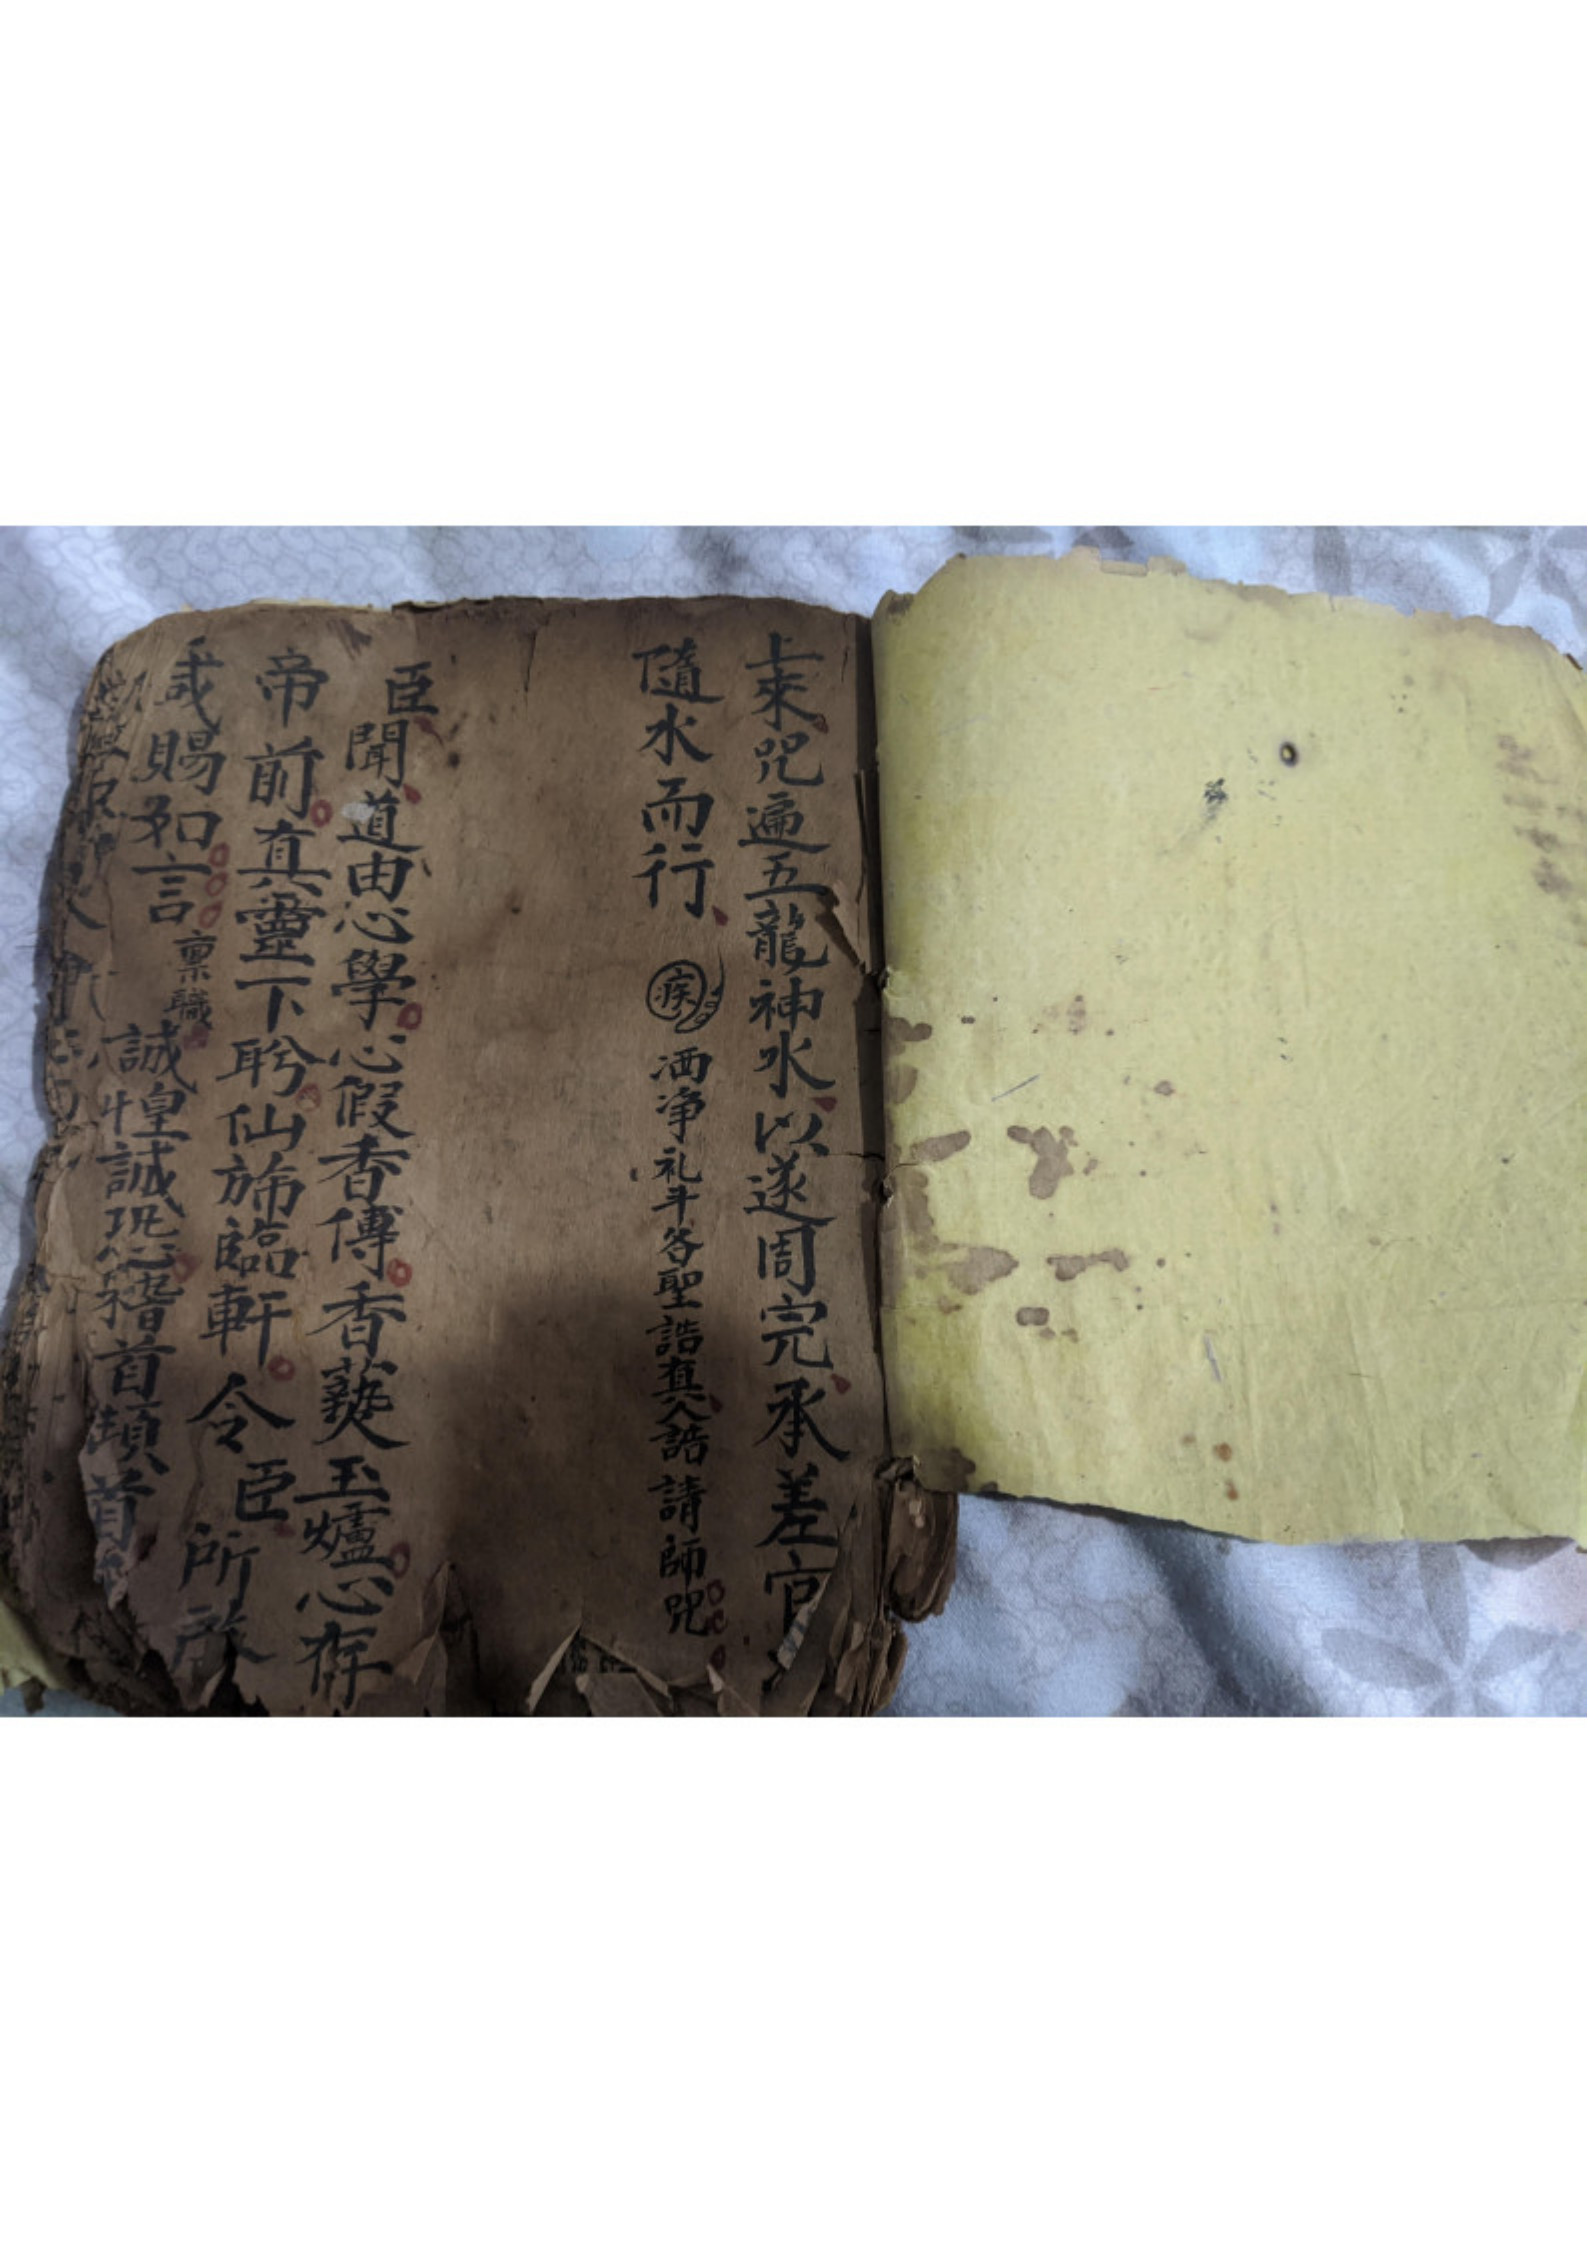 上來咒遍五龍神水以遂周完承差官
隨水而行 疾 洒净礼斗各聖誥真人誥請師咒
臣聞道由心學心假香傳香爇玉爐心存
帝前真靈下盻仙斾臨軒令臣所啟
咸賜如言 稟職 誠惶誠恐稽首頓首